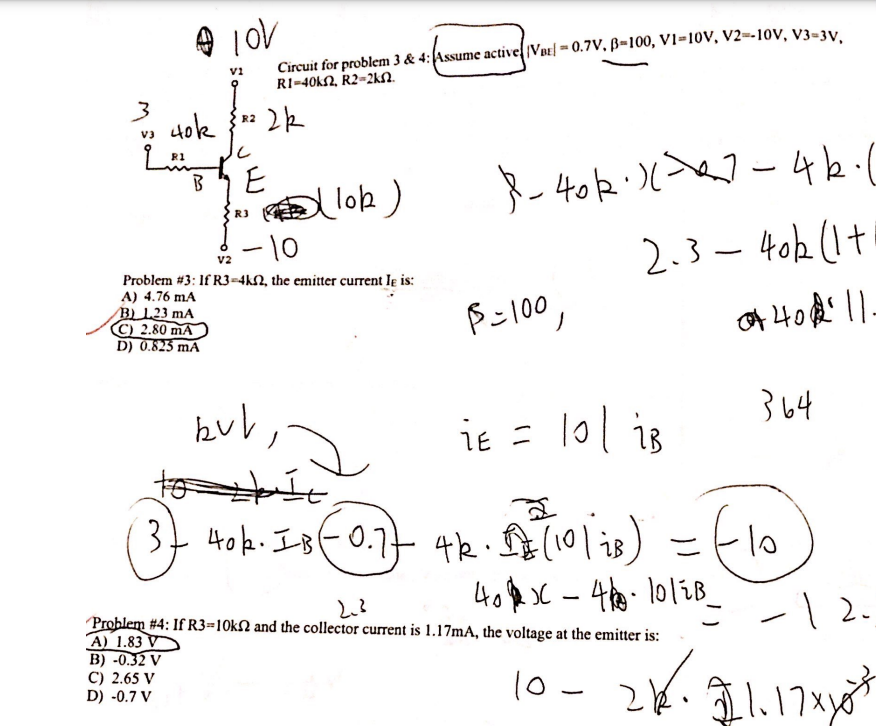 10V
Circuit for problem 3 & 4: Assume active, |VBE| = 0.7V, β=100, V1=10V, V2=-10V, V3=3V,
R1=40kΩ, R2=2kΩ.
V1
3
V3 40k R2 2k
R1 C
B E
R3 (10k)
V2 -10
3 - 40k · ) ( -0.7 - 4k · (
2.3 - 40k (1+
Problem #3: If R3=4kΩ, the emitter current IE is:
A) 4.76 mA
B) 1.23 mA
C) 2.80 mA
D) 0.825 mA
β=100,
40k 11.
364
kvl,
iE = 101 iB
3 - 40k · IB - 0.7 - 4k · (101 iB) = -10
40k x - 4k · 101 iB = -12.
2.3
Problem #4: If R3=10kΩ and the collector current is 1.17mA, the voltage at the emitter is:
A) 1.83 V
B) -0.32 V
C) 2.65 V
D) -0.7 V
10 - 2k · 1.17x10⁻³